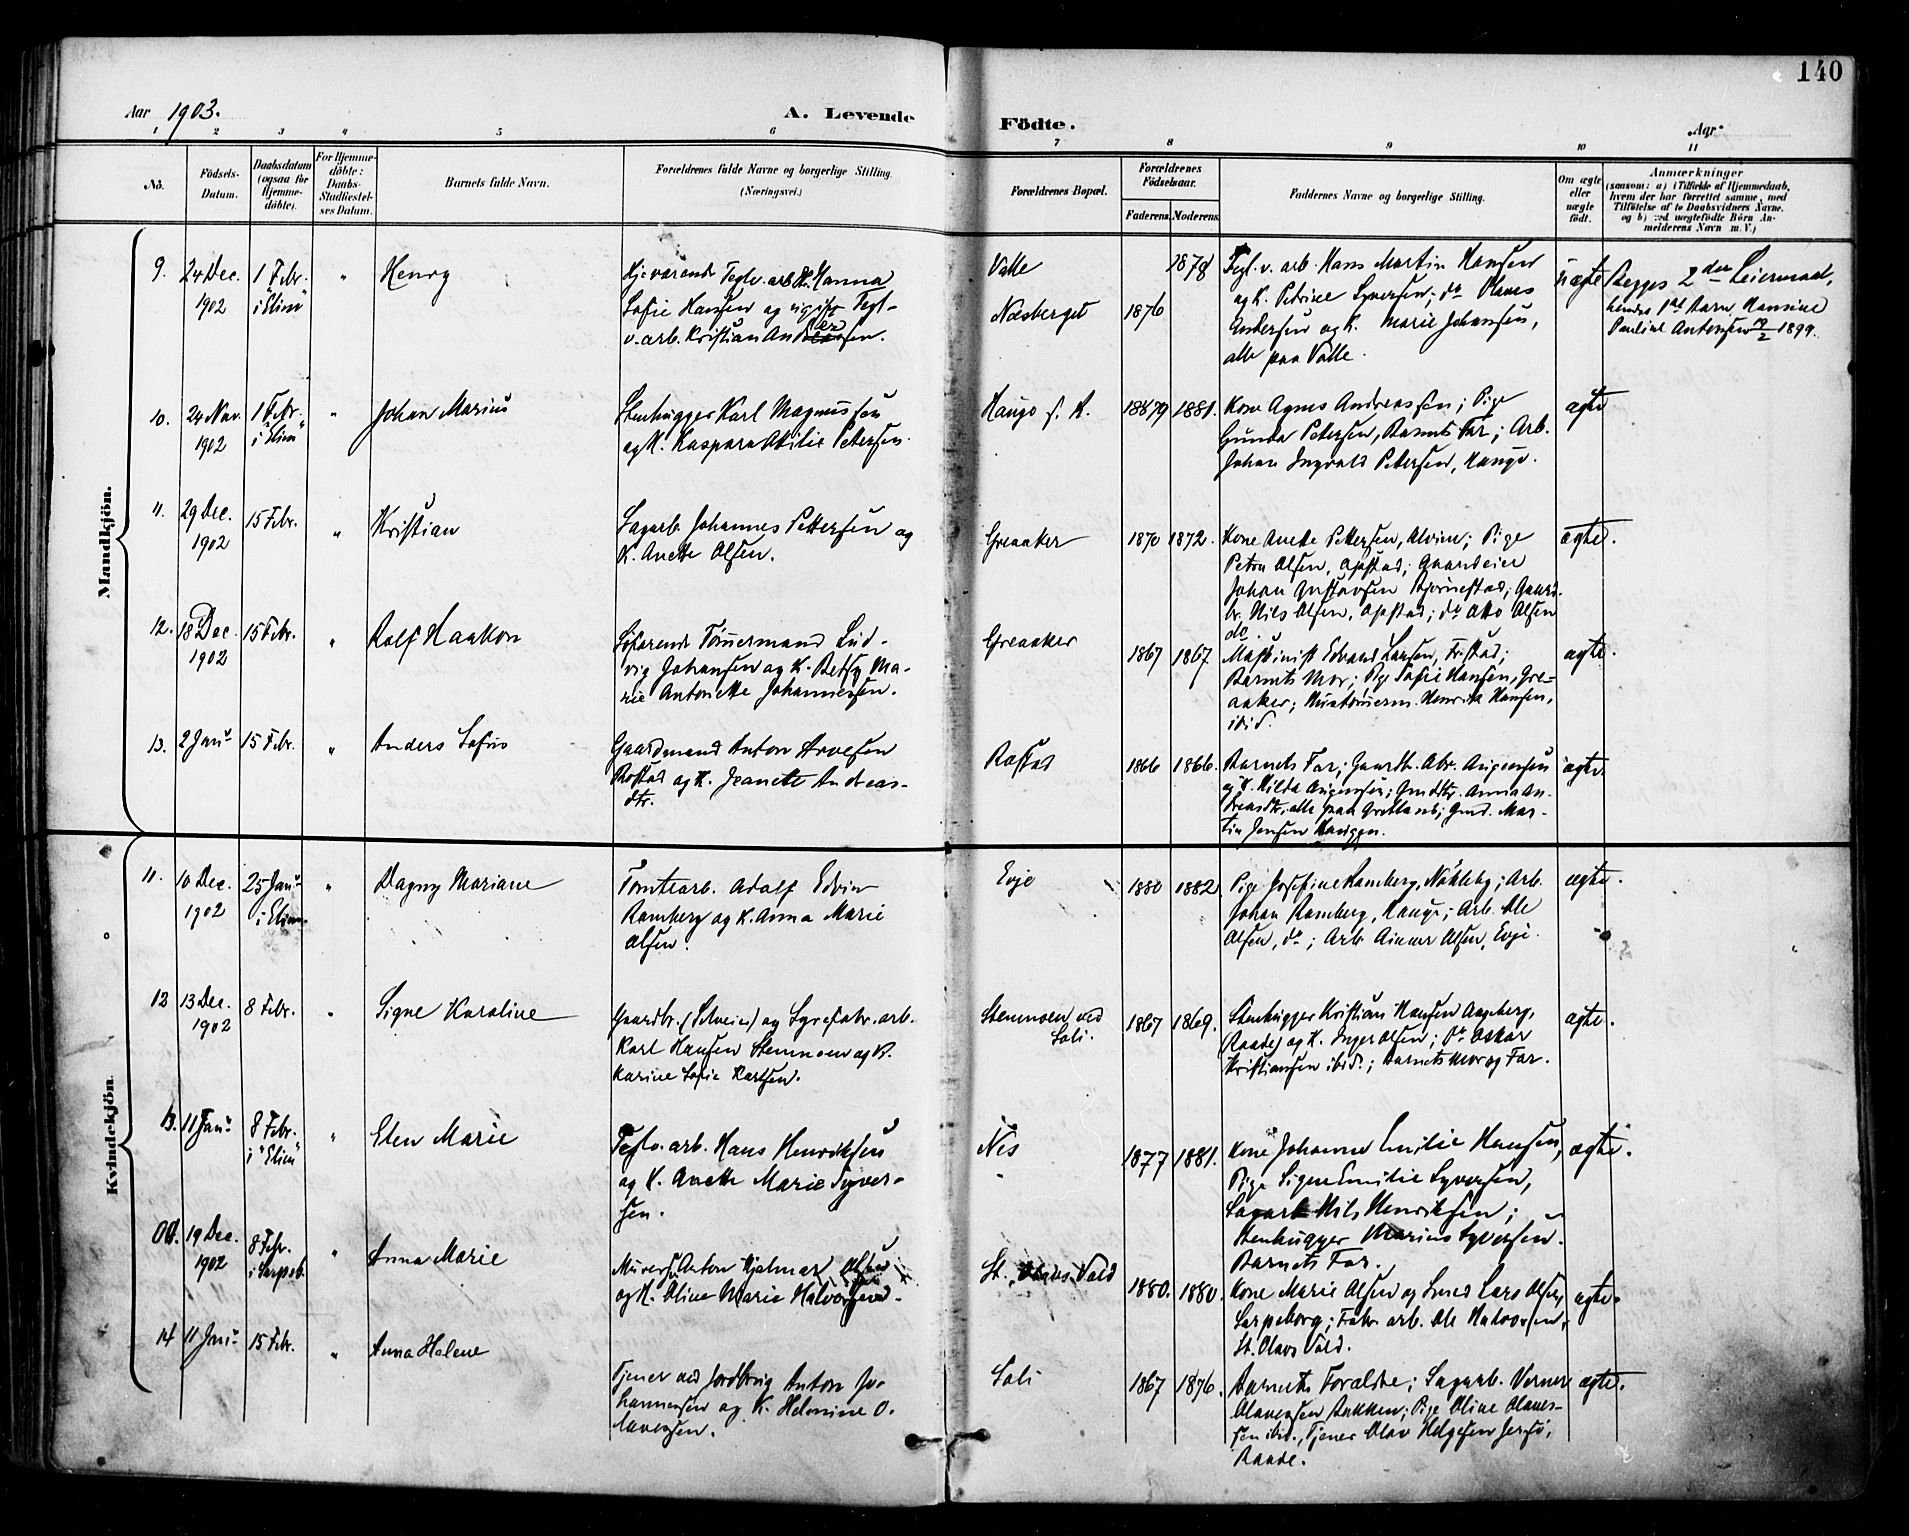 140
Aar 1903.
A. Levende Födte.
Aar
1 2 3 4 5 6 7 8 9 10 11
No.
Födsels-Datum.
Daabsdatum (ogsaa for Hjemme-döbte).
For Hjemme-döbte: Daabs-Stadfæstel-ses Datum.
Barnets fulde Navn.
Forældrenes fulde Navne og borgerlige Stilling. (Næringsvei.)
Forældrenes Bopæl.
Forældrenes Födselsaar.
Faderens. Moderens.
Faddernes Navne og borgerlige Stilling.
Om ægte eller uægte födt.
Anmærkninger
(saasom: a) i Tilfælde af Hjemmedaab,
hvem der har forrettet samme, med
Tilföielse af to Daabsvidners Navne,
og b) ved uægtefödte Börn An-
melderens Navn m. V.)
Mandkjön.
9. 24 Dec. 1902
1 Febr. i "Elim"
"
Henry
Hjeværende Teglv. arb. K. Hanna
Sofie Hansen og ugift Tegl-
v. arb. Kristian Andersen.
Valle
Næsberget
1876 1878
Tegl. v. arb. Hans Martin Hansen
og K. Petrine Syversen; do Olaves
Andersen og K. Marie Johansen,
alle paa Valle.
uægte
Begges 2den Leiermaal,
hendes 1ste Barn, Hansine
Pauline Antonsen 1899.
10. 24 Nov. 1902
1 Febr. i "Elim"
"
Johan Marius
Stenhugger Karl Magnussen
og K. Kaspara Otilie Petersen.
Haugo f. K.
1879 1881.
Kone Agnes Andreassen; Pige
Gunda Petersen, Barnets Far; Arb.
Johan Ingvald Petersen, Hauge.
ægte
11. 29 Dec. 1902
15 Febr.
"
Kristian
Sagarb. Johannes Pettersen og
K. Anette Olsen.
Greaaker
1870 1872.
Kone Anette Pettersen, Alvim; Pige
Petra Olsen, Opstad; Gaardeier
Johan Gustavsen Bjørnestad; Gaard-
br. Nils Olsen, Opstad; do Otto Olsen
do.
ægte.
12. 18 Dec. 1902
15 Febr.
"
Rolf Haakon
Søfarende Tømmermand Lud-
vig Johansen og K. Betsy Ma-
rie Antonette Johannessen.
Greaaker
1867 1867
Maskinist Edvard Larsen, Fr.stad;
Barnets Mor; Pige Sofie Hansen, Gre-
aaker; Hustømmerm. Henrik Hansen,
ibid.
ægte.
13. 2 Janu
15 Febr.
"
Anders Sofus
Gaardmand Anton Arvesen
Rostad og K. Jeanette Andreas-
dtr.
Rostad
1866 1866.
Barnets Far; Gaardb. Abr. Augensen
og K. Hilda Augensen; Gmdtr. Anna An-
dreasdtr. alle paa Gretland; Gmd. Mar-
tin Jensen Haugen.
ægte.
Kvindekjön.
11. 10 Dec. 1902
25 Janu i Elim
"
Dagny Mariane
Tomtearb. Adolf Edvin
Ramberg og K. Anna Marie
Olsen.
Evje
1880 1882
Pige Josefine Ramberg, Nökleby; Arb.
Johan Ramberg, Hauge; Arb. Ole
Olsen, do; Arb. Ainar Olsen, Evje.
ægte.
12 13 Dec. 1902
8 Febr.
"
Signe Karoline
Gaardbr. (Selveier) og Syrefabr. arb.
Karl Hansen Stenmoen og K.
Karine Sofie Karlsen.
Stenmoen ved Soli.
1867 1869.
Stenhugger Kristian Hansen Augeberg,
Raade og K. Inger Olsen; do Oskar
Kristiansen ibid.; Barnets Mor og Far.
ægte.
13. 11 Janu
8 Febr. i "Elim"
"
Elen Marie
Teglv. arb. Hans Henriksen
og K. Anette Marie Syver-
sen.
Nes
1877 1881.
Kone Johanne Emilie Hansen,
Pige Signe Emilie Syversen,
Sagarb. Nils Henriksen;
Stenhugger Marius Syversen.
Barnets Far.
ægte.
19 Dec. 1902
8 Febr. i Sarpsb.
"
Anna Marie
Murersv. Anton Hjalmar Olsen
og K. Oline Marie Halvorsen.
St. Olavs Vold
1880. 1880.
Kone Marie Olsen og Smed Lars Olsen,
Sarpsborg; Fabr. arb. Ole Halvorsen,
St. Olavs Vold.
ægte.
14 11 Janu
15 Febr.
"
Anna Helene
Tjener ved Jordbrug Anton Jo-
hannessen og K. Helmine O-
lavesen.
Soli
1867 1876.
Barnets Forældre; Sagarb. Verner
Olavesen Bakken; Pige Oline Olaves-
sen ibid., Tjener Olav Helgesen Jersö,
Raade.
ægte.